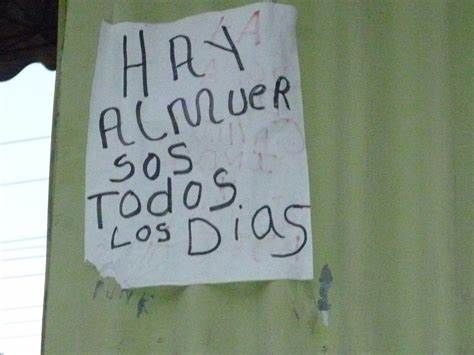 HAY
ALMUER
SOS
TODOS
LOS DiAS